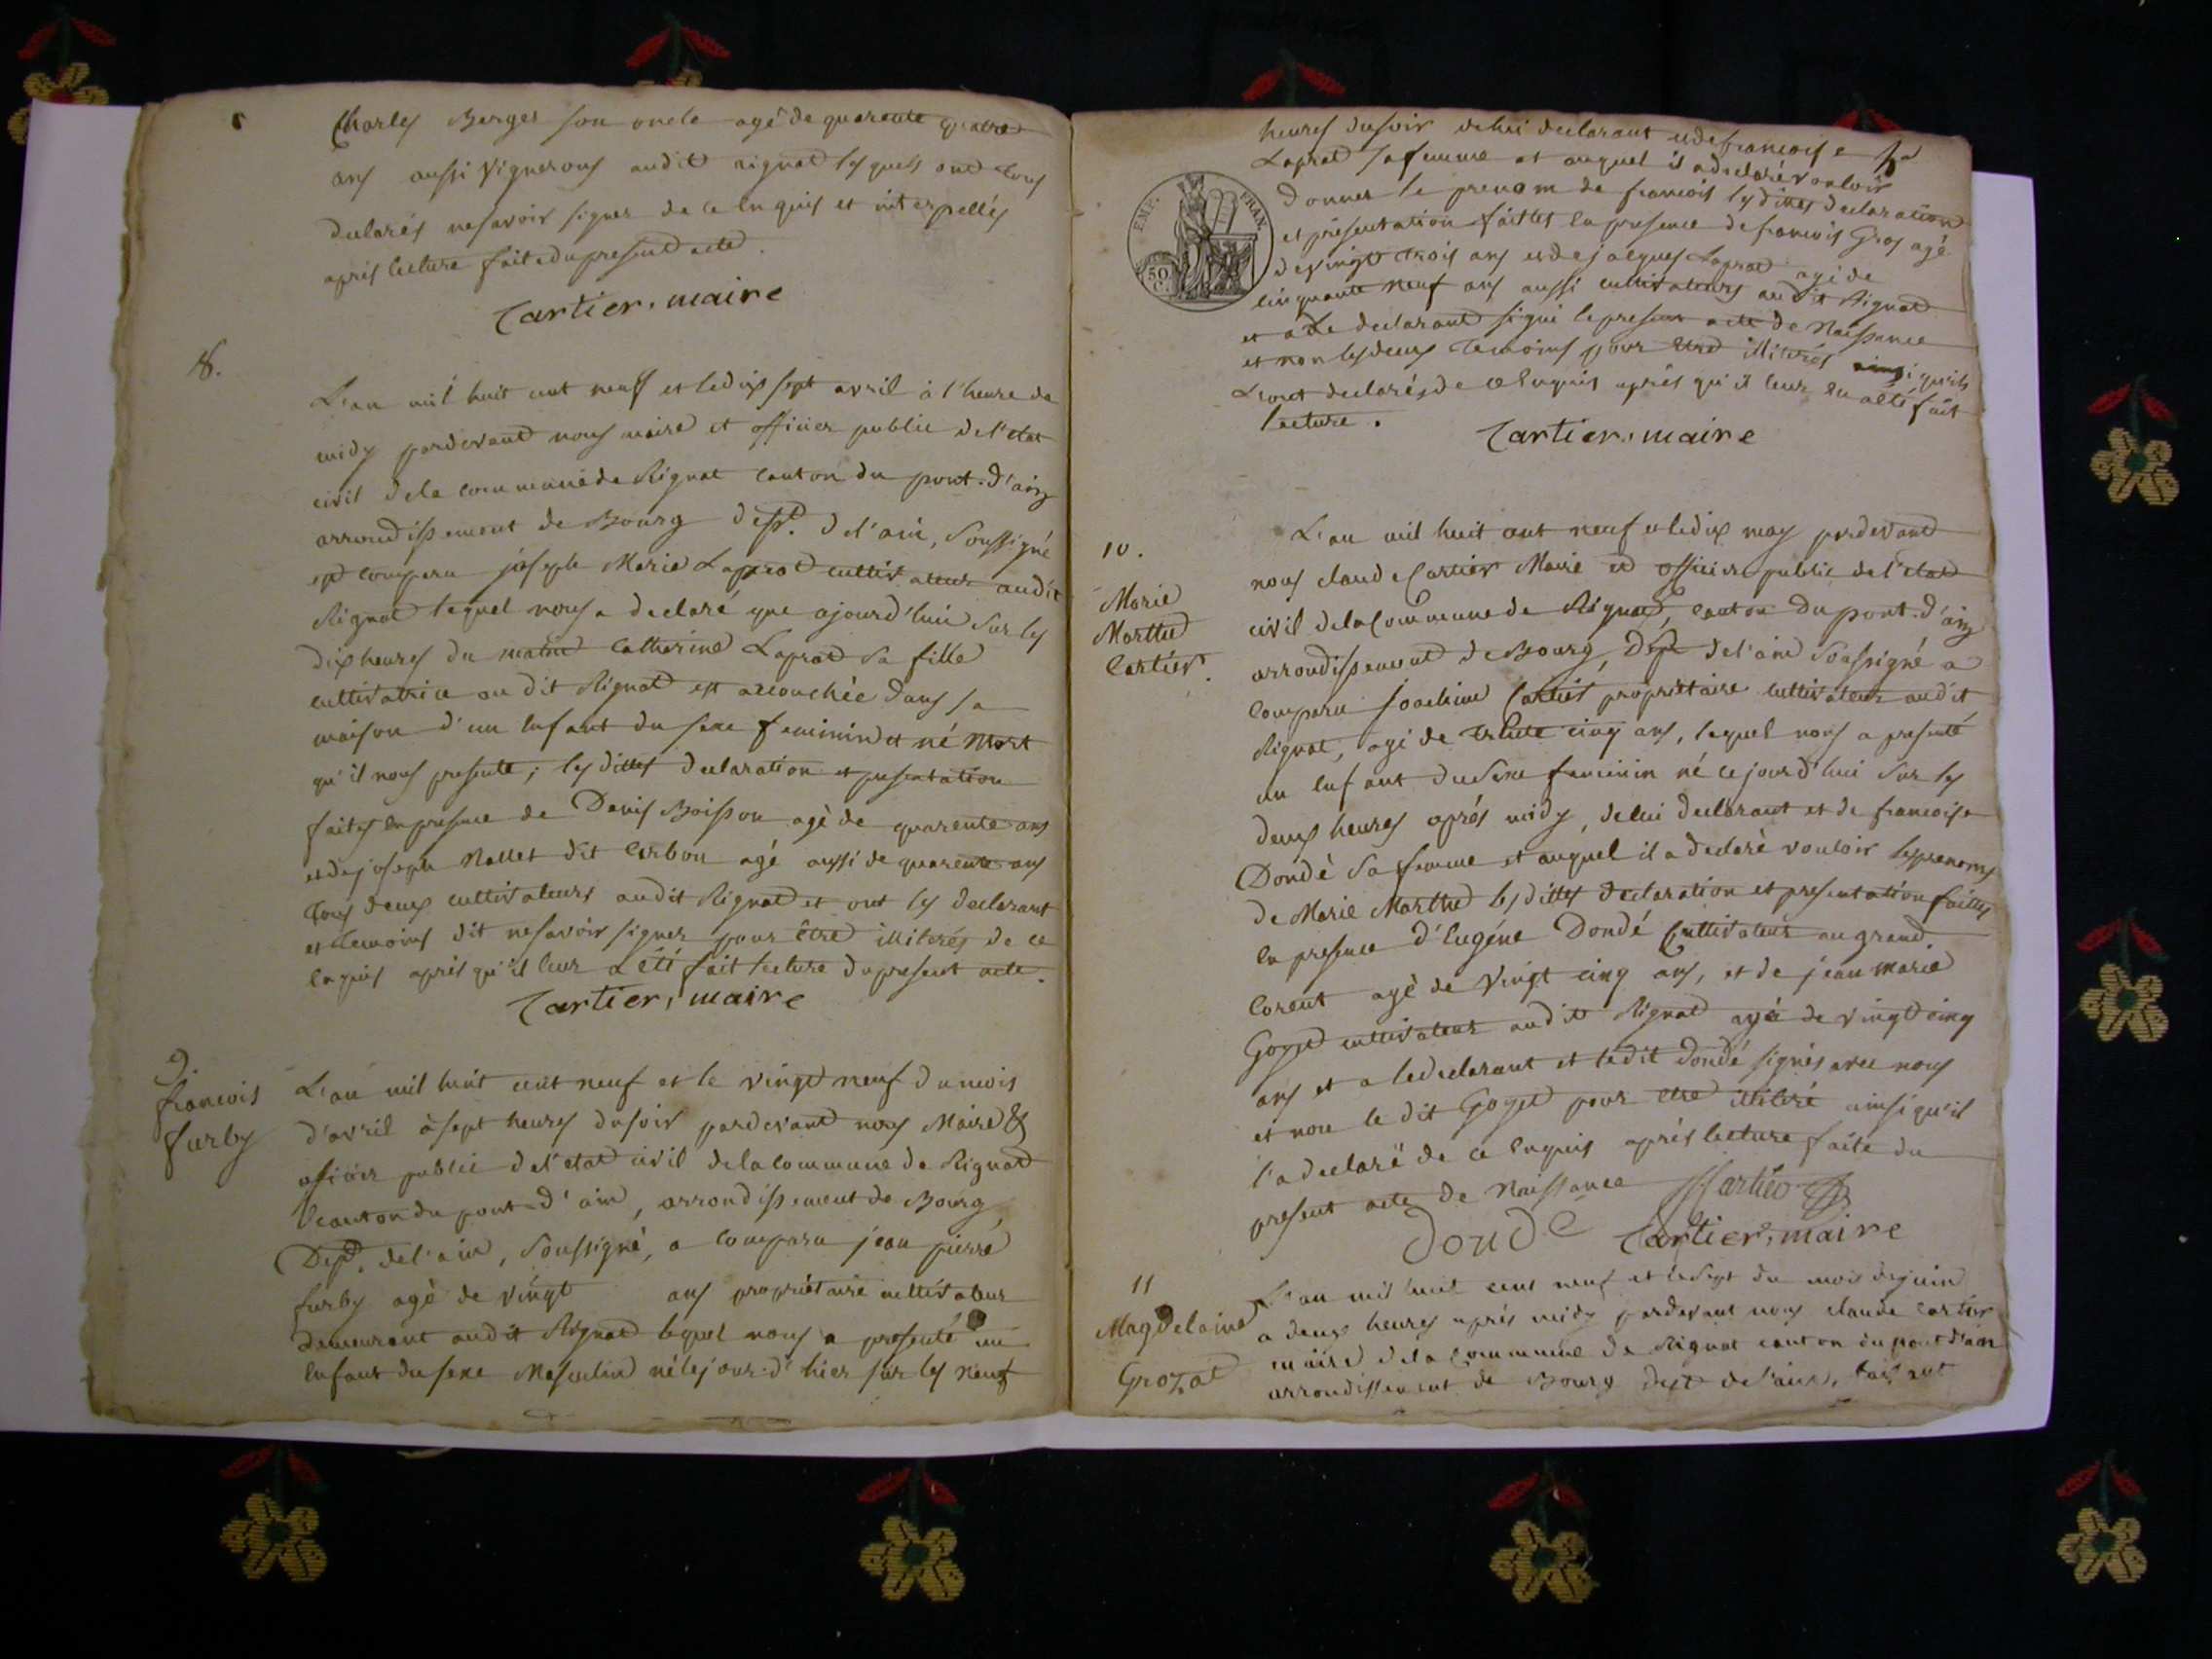 Charles Berger son oncle agé de quarente quatre
ans aussi vignerons audit rignat lesquels ont tous
declarés ne savoir signer de ce enquis et interpellés
apris lecture faite du present acte.
Cartier, maire
8.
L'an mil huit cent neuf et le dix sept avril à l'heure de
midy pardevant nous maire et officier public de l'etat
civil de la commune de Rignat canton du pont-d'ain
arrondissement de Bourg depᵗ. de l'ain, soussigné
est comparu joseph Marie Laprat cultivateur audit
Rignat lequel nous a declaré que ajourd'hui sur les
dix heures du matin Catherine Laprat sa fille
cultivatrice au dit Rignat est accouchée dans sa
maison d'un enfant du sexe feminin et né mort
qu'il nous presente; les dittes declaration et presentation
faites en presence de Denis Boisson agé de quarente ans
et de joseph Nallet dit Carbon agé aussi de quarente ans
tous deux cultivateurs audit Rignat et ont les declarant
et temoins dit ne savoir signer pour être illiterés de ce
enquis apris qu'il leur a été fait lecture du present acte.
Cartier, maire
9.
francois
furby
L'an mil huit cent neuf et le vingt neuf du mois
d'avril à sept heures du soir pardevant nous Maire &
officier public de l'etat civil de la commune de Rignat
canton du pont-d'ain, arrondissement de Bourg,
Depᵗ. de l'ain, soussigné, a comparu jean pierre
furby agé de vingt ans propriétaire cultivateur
demeurant audit Rignat lequel nous a presenté un
enfant du sexe Masculin né le jour d'hier sur les neuf
heures du soir de lui declarant et de francoise
Laprat sa femme et auquel il a declaré vouloir
donner le prenom de francois les dittes declaration
et présentation faittes en presence de francois Gros agé
de vingt trois ans et de jacques Laprat agé de
cinquante neuf ans aussi cultivateurs au dit Rignat
et a le declarant signé le present acte de Naissance
et non les deux temoins pour etre illiterés ainsi qu'ils
l'ont declarés de ce enquis aprés qu'il leur en a été fait
lecture.
Cartier, maire
EMP. FRAN.
50 C.
10.
Marie
Marthe
Cartier.
L'an mil huit cent neuf et le dix may pardevant
nous claude Cartier Maire et officier public de l'etat
civil de la Commune de Rignat, canton du pont-d'ain
arrondissement de Bourg, Dept de l'ain soussigné a
comparu Joachim Cartier propriétaire cultivateur audit
Rignat, agé de trente cinq ans, lequel nous a presenté
un enfant du sexe feminin né ce jourd'hui sur les
deux heures aprés midy, de lui declarant et de francoise
Dondé sa femme et auquel il a declaré vouloir les prenoms
de Marie Marthe les dittes declaration et presentation faittes
en presence d'Eugéne Dondé Cultivateur au grand
Corent agé de vingt cinq ans, et de jean marie
Goyet cultivateur audit Rignat agé de vingt cinq
ans et a le declarant et le dit Dondé signés avec nous
et non le dit Goyet pour etre illitéré ainsi qu'il
l'a declaré de ce enquis aprés lecture faite du
present acte de Naissance Cartier
Dondé Cartier, maire
11
Magdelaine
Grozat
L'an mil huit cent neuf et le sept du mois de juin
a deux heures aprés midy pardevant nous claude Cartier
maire de la Commune de Rignat canton du pont d'ain
arrondissement de Bourg dept de l'ain, faisant